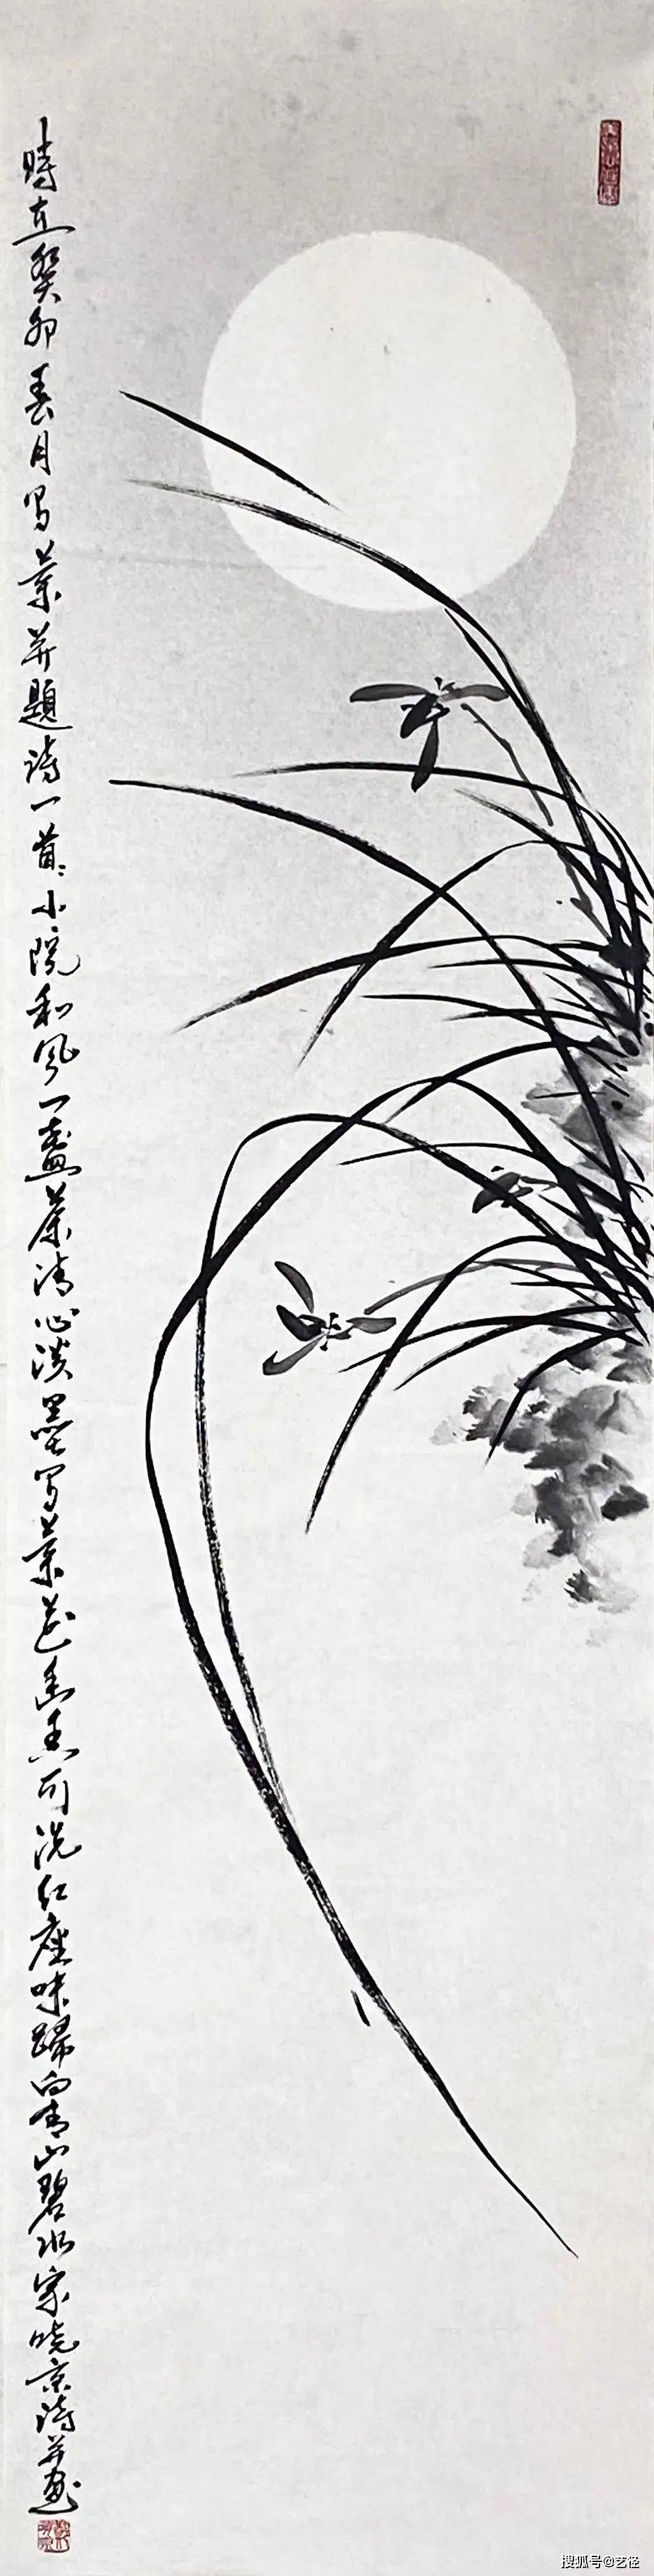 時在癸卯春月写蘭并題诗一首:小院和风一盏茶清心淡墨写蘭花幽香可洗红塵味歸向青山碧水家晓京诗并画
搜狐号@艺径